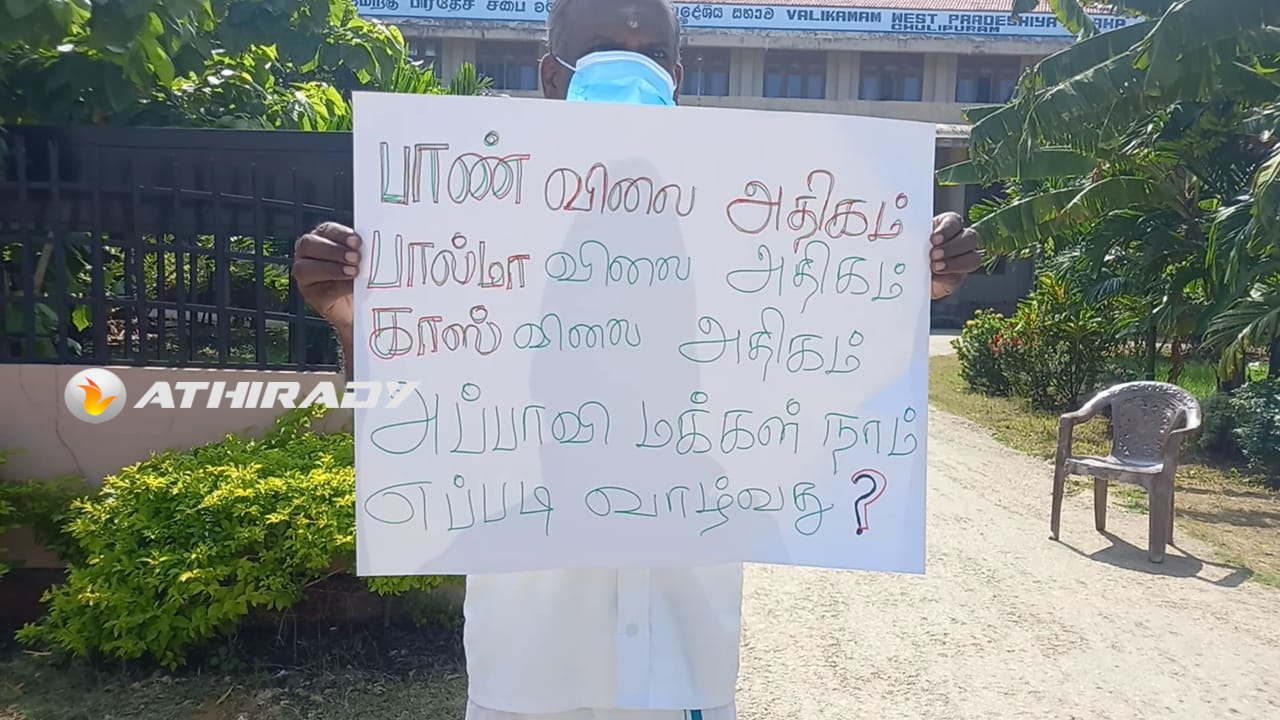 பிரதேச சபை
දේශීය සභාව VALIKAMAM WEST PRADESHIYA SABHA
CHULIPURAM
பாண் விலை அதிகம்
பால்மா விலை அதிகம்
காஸ் விலை அதிகம்
ATHIRADY
அப்பாவி மக்கள் நாம்
எப்படி வாழ்வது ?